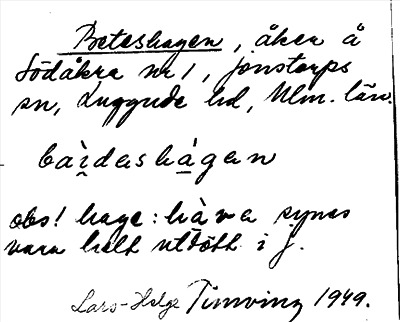 Beteshagen, åker å
Södåkra nr 1, Jonstorps
sn, Luggude hd, Mlm. län.
baịdashàgan
obs! hage: hàva synes
vara helt utdött i J.
Lars-Helge Timving 1949.